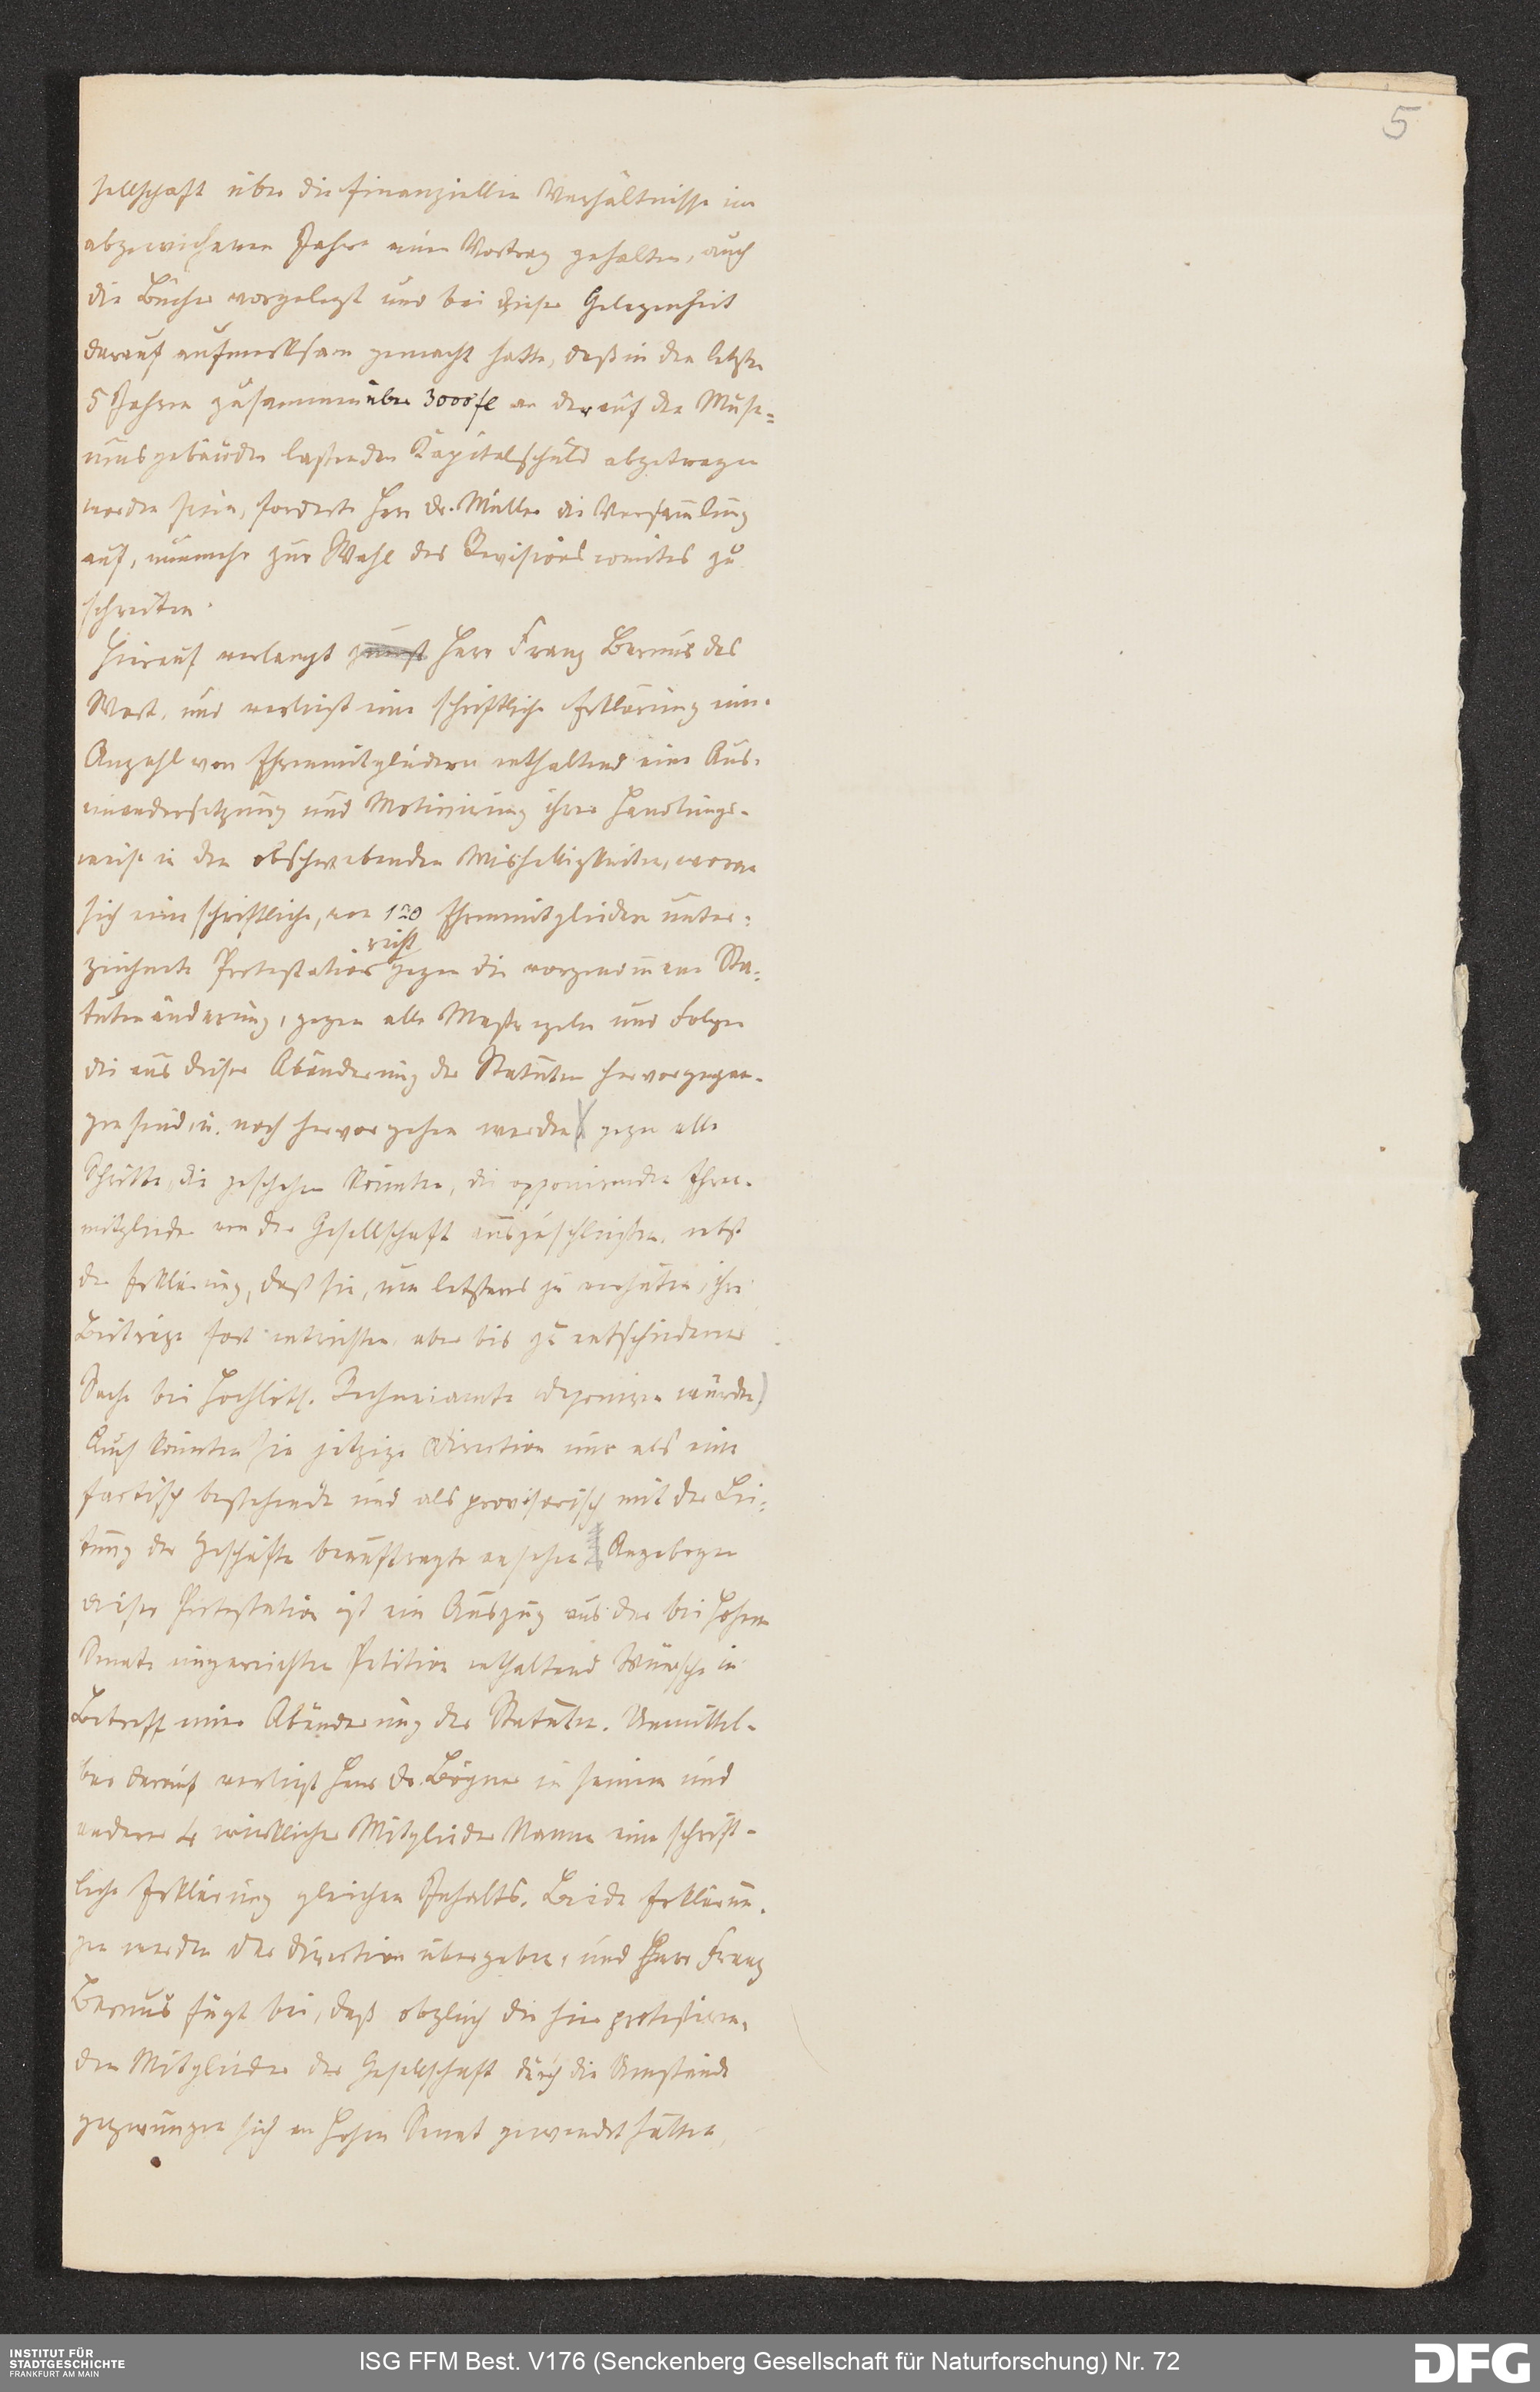 5
sellschaft über die finanziellen Verhältnisse im
abgewichenen Jahre einen Vortrag gehalten, auch
die Bücher vorgelegt und bei dieser Gelegenheit
darauf aufmerksam gemacht hatte, daß in den letzten
5 Jahren zusammen über 3000 fl an der auf den Muse=
umsgebäuden lastenden Kapitalschuld abgetragen
worden seien, forderte Herr Dr. Müller die Versammlung
auf, nunmehr zur Wahl des Revisionscomites zu
schreiten.
Hierauf verlangt Herr Franz Bernus das
Wort, und verliest eine schriftliche Erklärung einer
Anzahl von Ehrenmitgliedern enthaltend eine Aus-
einandersetzung und Motivirung ihrer Handlungs-
weise in den obschwebenden Mishelligkeiten, woran
sich eine schriftliche, von 120 Ehrenmitgliedern unter=
zeichnete Protestation reiht gegen die vorgenommene Sta=
tutenänderung, gegen alle Maßregeln und Folgen
die aus dieser Abänderung der Statuten hervorgegan-
gen sind, u. noch hervorgehen werden, gegen alle
Schritte, die geschehen könnten, die opponirenden Ehren-
mitglieder von der Gesellschaft auszuschließen, nebst
der Erklärung, daß sie, um letzteres zu verhüten, ihre
Beiträge fort entrichten, aber bis zu entschiedener
Sache bei Hochlöbl. Rechneiamte deponiren würden)
Auch könnten sie jetzige Direction nur als eine
factisch bestehende und als provisorisch mit der Lei=
tung der Geschäfte beauftragte ansehen Angebogen
dieser Protestation ist ein Auszug aus der bei Hohem
Senate eingereichten Petition enthaltend Wünsche in
Betreff einer Abänderung der Statuten. Unmittel-
bar darauf verliest Herr Dr. Bögner in seinem und
anderer 4 wirklicher Mitglieder Namen eine schrift-
liche Erklärung gleichen Inhalts. Beide Erklärun-
gen werden der Direction übergeben, und Herr Franz
Bernus fügt bei, daß obgleich die hier protestiren-
den Mitglieder der Gesellschaft durch die Umstände
gezwungen sich an Hohen Senat gewendet hätten,
INSTITUT FÜR
STADTGESCHICHTE
FRANKFURT AM MAIN
ISG FFM Best. V176 (Senckenberg Gesellschaft für Naturforschung) Nr. 72
DFG